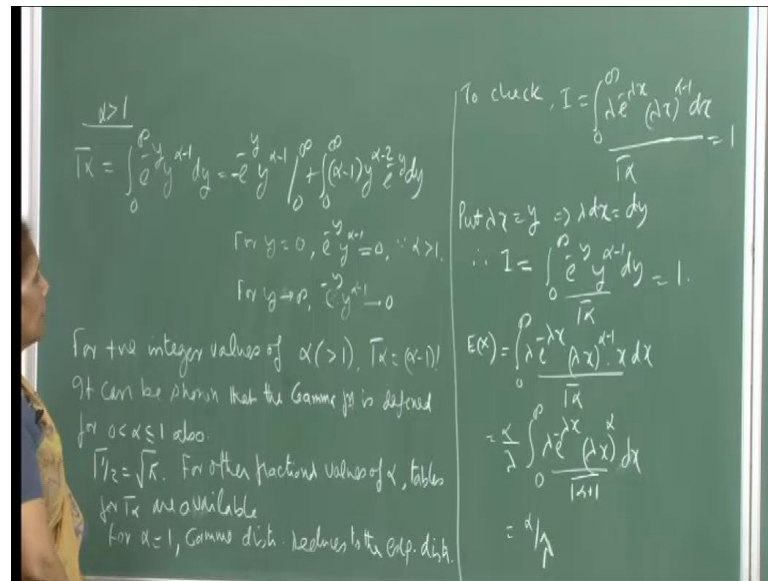 α>1
Γα = ∫₀^∞ e^{-y} y^{α-1} dy = -e^{-y} y^{α-1} /₀^∞ + ∫₀^∞ (α-1) y^{α-2} e^{-y} dy
For y = 0, e^{-y} y^{α-1} = 0, ∵ α>1.
For y→∞, e^{-y} y^{α-1} → 0
For +ve integer values of α(>1), Γα = (α-1)!
It can be shown that the Gamma fn is defined
for 0<α≤1 also.
Γ1/2 = √π. For other fractional values of α, tables
for Γα are available
For α=1, Gamma distr. reduces to the exp. distr.
To check, I = ∫₀^∞ λe^{-λx} (λx)^{α-1} dx / Γα = 1
Put λx = y ⇒ λdx = dy
∴ I = ∫₀^∞ e^{-y} y^{α-1} dy / Γα = 1.
E(X) = ∫₀^∞ λe^{-λx} (λx)^{α-1} · x dx / Γα
= α/λ ∫₀^∞ λe^{-λx} (λx)^α dx / Γα+1
= α/λ